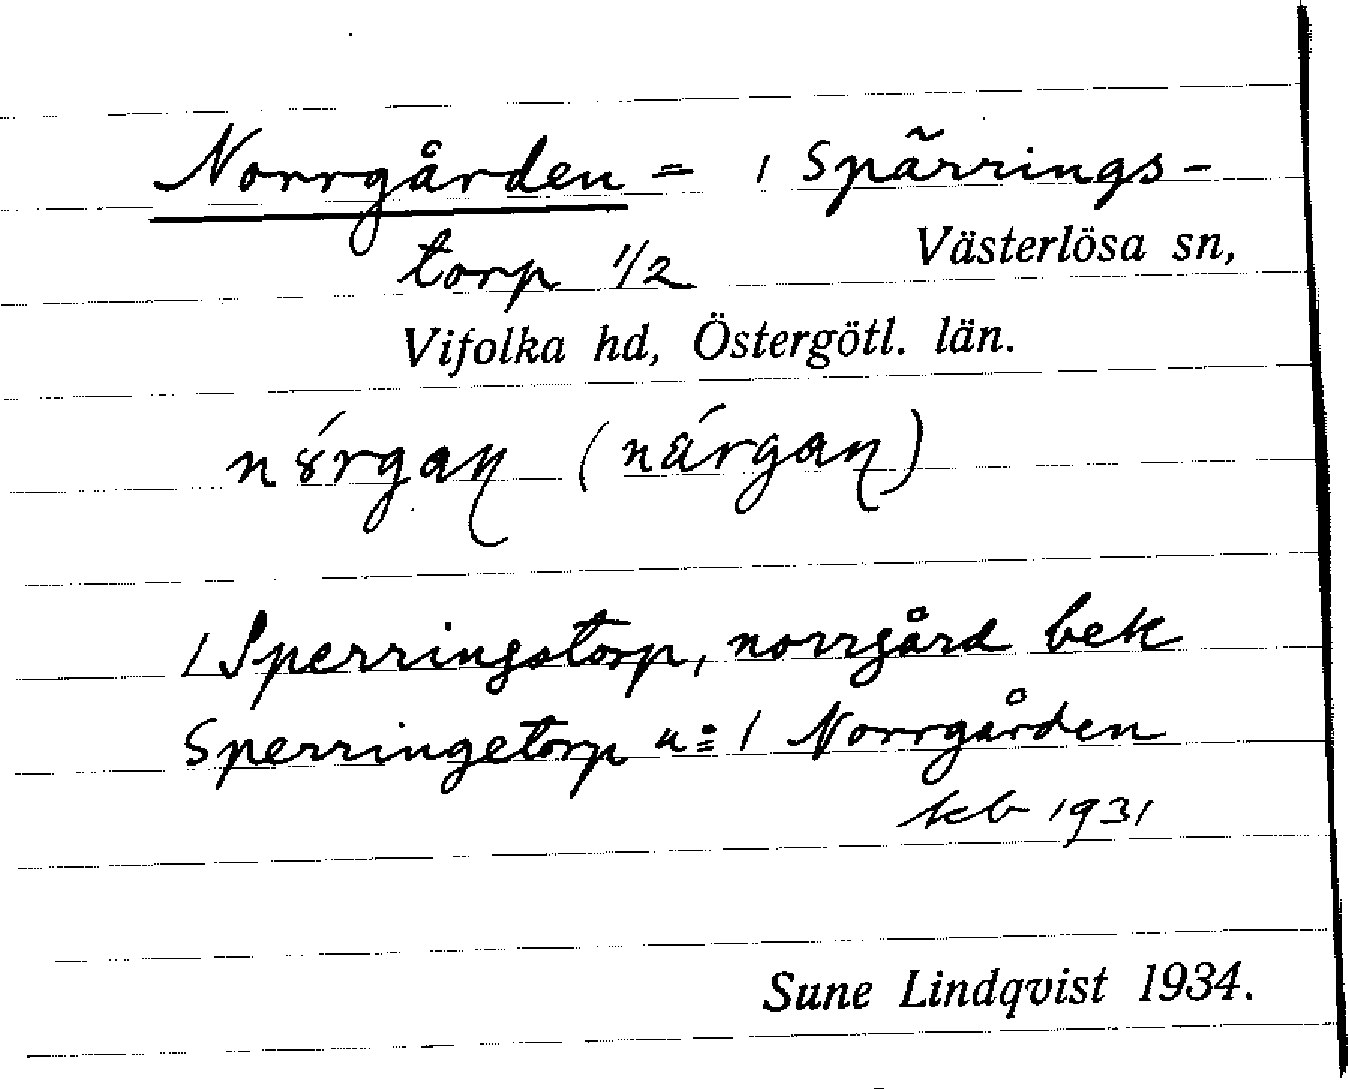 Norrgården = 1 Spärrings-
torp 1/2 Västerlösa sn,
Vifolka hd, Östergötl. län.
nórgaꞑ (nárgaꞑ)
1 Sperringstorp, norrgård bek
Sperringetorp 1 Norrgården
kb 1931
Sune Lindqvist 1934.